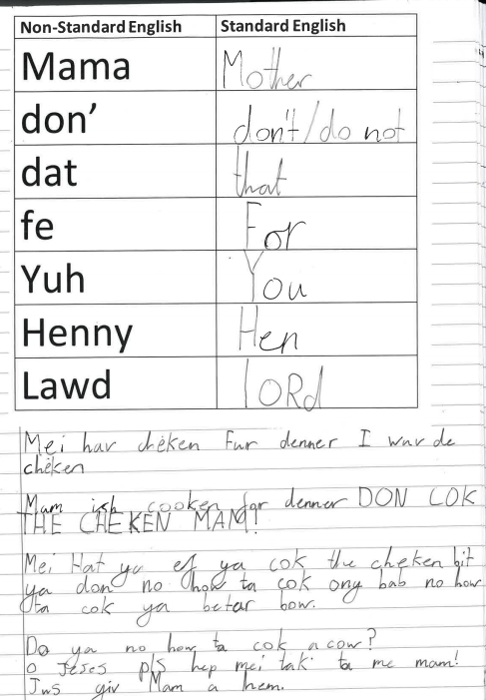 Non-Standard English Standard English
Mama Mother
don' don't/do not
dat that
fe For
Yuh You
Henny Hen
Lawd lORd
Mei har chêken Fur denner I wur de
chêken
Mam ish cooken for denner DON COK
THE CHEKEN MAM!
Mei Hat yu ef ya cok the cheken bit
ya don no how ta cok ony bab no how
ta cok ya betar bow.
Do ya no how ta cok a cow?
o Jeses pls hep mei tak ta me mam!
Jws giv Mam a hem.